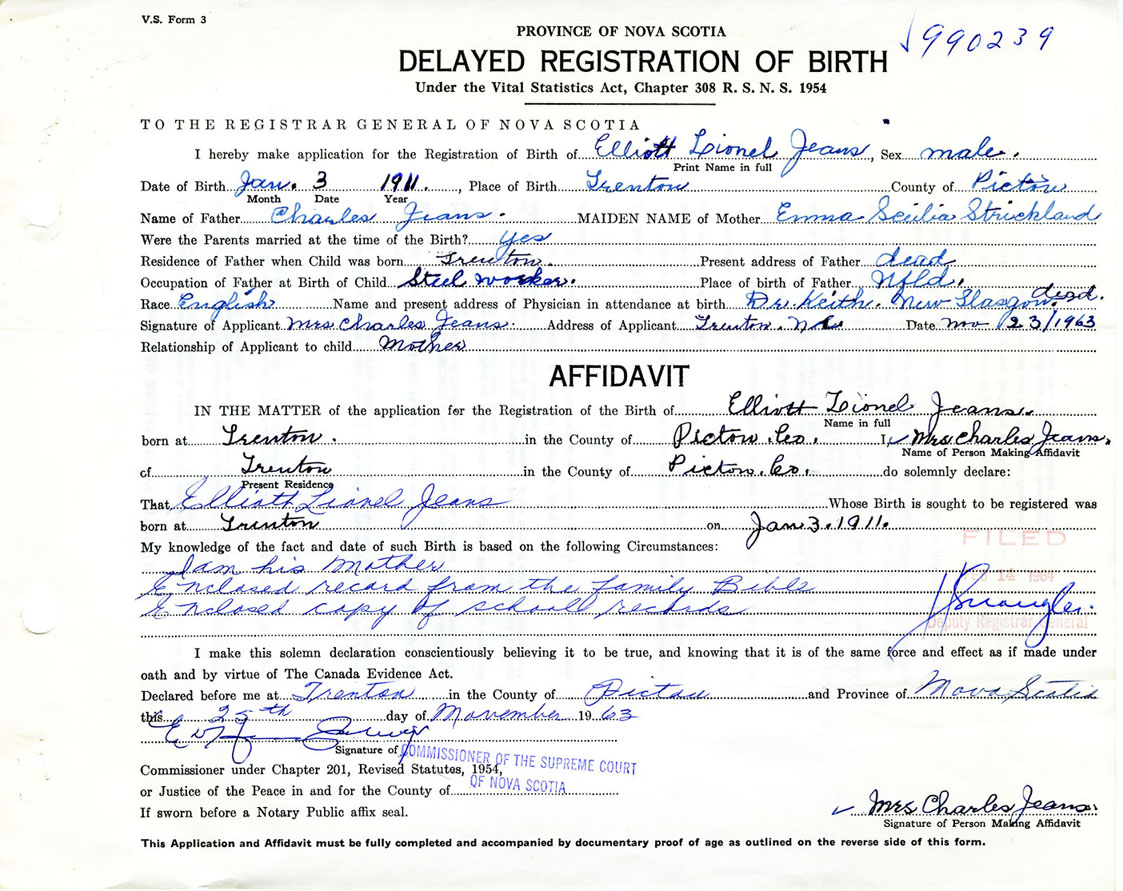 V.S. Form 3
PROVINCE OF NOVA SCOTIA
990239
DELAYED REGISTRATION OF BIRTH
Under the Vital Statistics Act, Chapter 308 R. S. N. S. 1954
TO THE REGISTRAR GENERAL OF NOVA SCOTIA
I hereby make application for the Registration of Birth of Elliott Lionel Jeans, Sex male.
Print Name in full
Date of Birth Jan. 3 1911., Place of Birth Trenton County of Pictou
Month Date Year
Name of Father Charles Jeans. MAIDEN NAME of Mother Emma Scilia Strickland
Were the Parents married at the time of the Birth? yes
Residence of Father when Child was born Trenton. Present address of Father dead
Occupation of Father at Birth of Child Steel worker. Place of birth of Father Nfld.
Race English Name and present address of Physician in attendance at birth Dr. Keith. New Glasgow. dead.
Signature of Applicant Mrs. Charles Jeans. Address of Applicant Trenton. N.S. Date Nov 23/1963
Relationship of Applicant to child Mother
AFFIDAVIT
IN THE MATTER of the application for the Registration of the Birth of Elliott Lionel Jeans.
Name in full
born at Trenton. in the County of Pictou Co. I, Mrs Charles Jeans.
Name of Person Making Affidavit
of Trenton in the County of Pictou Co. do solemnly declare:
Present Residence
That Elliott Lionel Jeans Whose Birth is sought to be registered was
born at Trenton on Jan 3. 1911.
My knowledge of the fact and date of such Birth is based on the following Circumstances:
FILED
I am his Mother
Enclosed record from the family Bible
FEB 14 1964
Enclosed copy of school records
Deputy Registrar General
I make this solemn declaration conscientiously believing it to be true, and knowing that it is of the same force and effect as if made under
oath and by virtue of The Canada Evidence Act.
Declared before me at Trenton in the County of Pictou and Province of Nova Scotia
this 25th day of November 1963
Signature of
COMMISSIONER OF THE SUPREME COURT
OF NOVA SCOTIA
Commissioner under Chapter 201, Revised Statutes, 1954,
or Justice of the Peace in and for the County of
If sworn before a Notary Public affix seal.
Mrs Charles Jeans.
Signature of Person Making Affidavit
This Application and Affidavit must be fully completed and accompanied by documentary proof of age as outlined on the reverse side of this form.